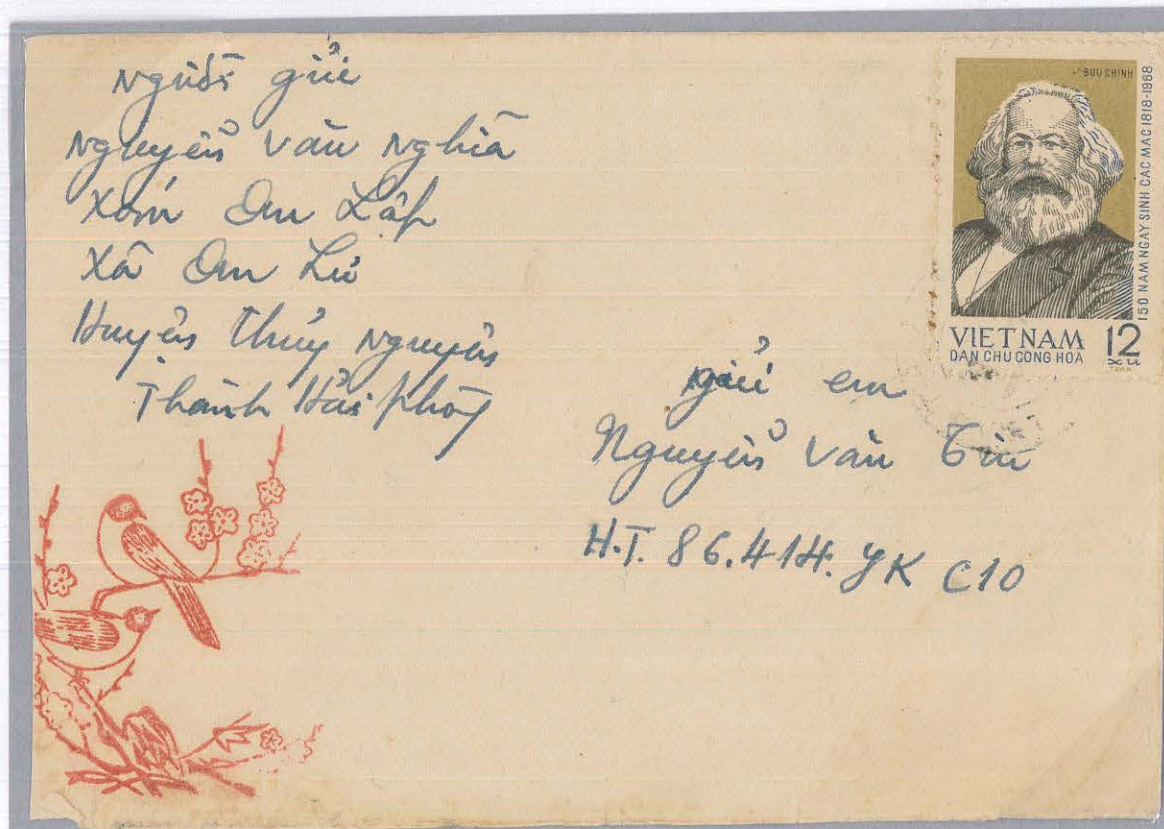 Người gửi
Nguyễn Văn Nghĩa
Xóm An Lập
Xã An Lư
Huyện Thủy Nguyên
Thành Hải phòng
BUU CHINH
150 NAM NGAY SINH CAC MAC 1818-1968
VIETNAM
DAN CHU CONG HOA
12
xu
gửi em
Nguyễn Văn
H.T. 86.414. YK C10